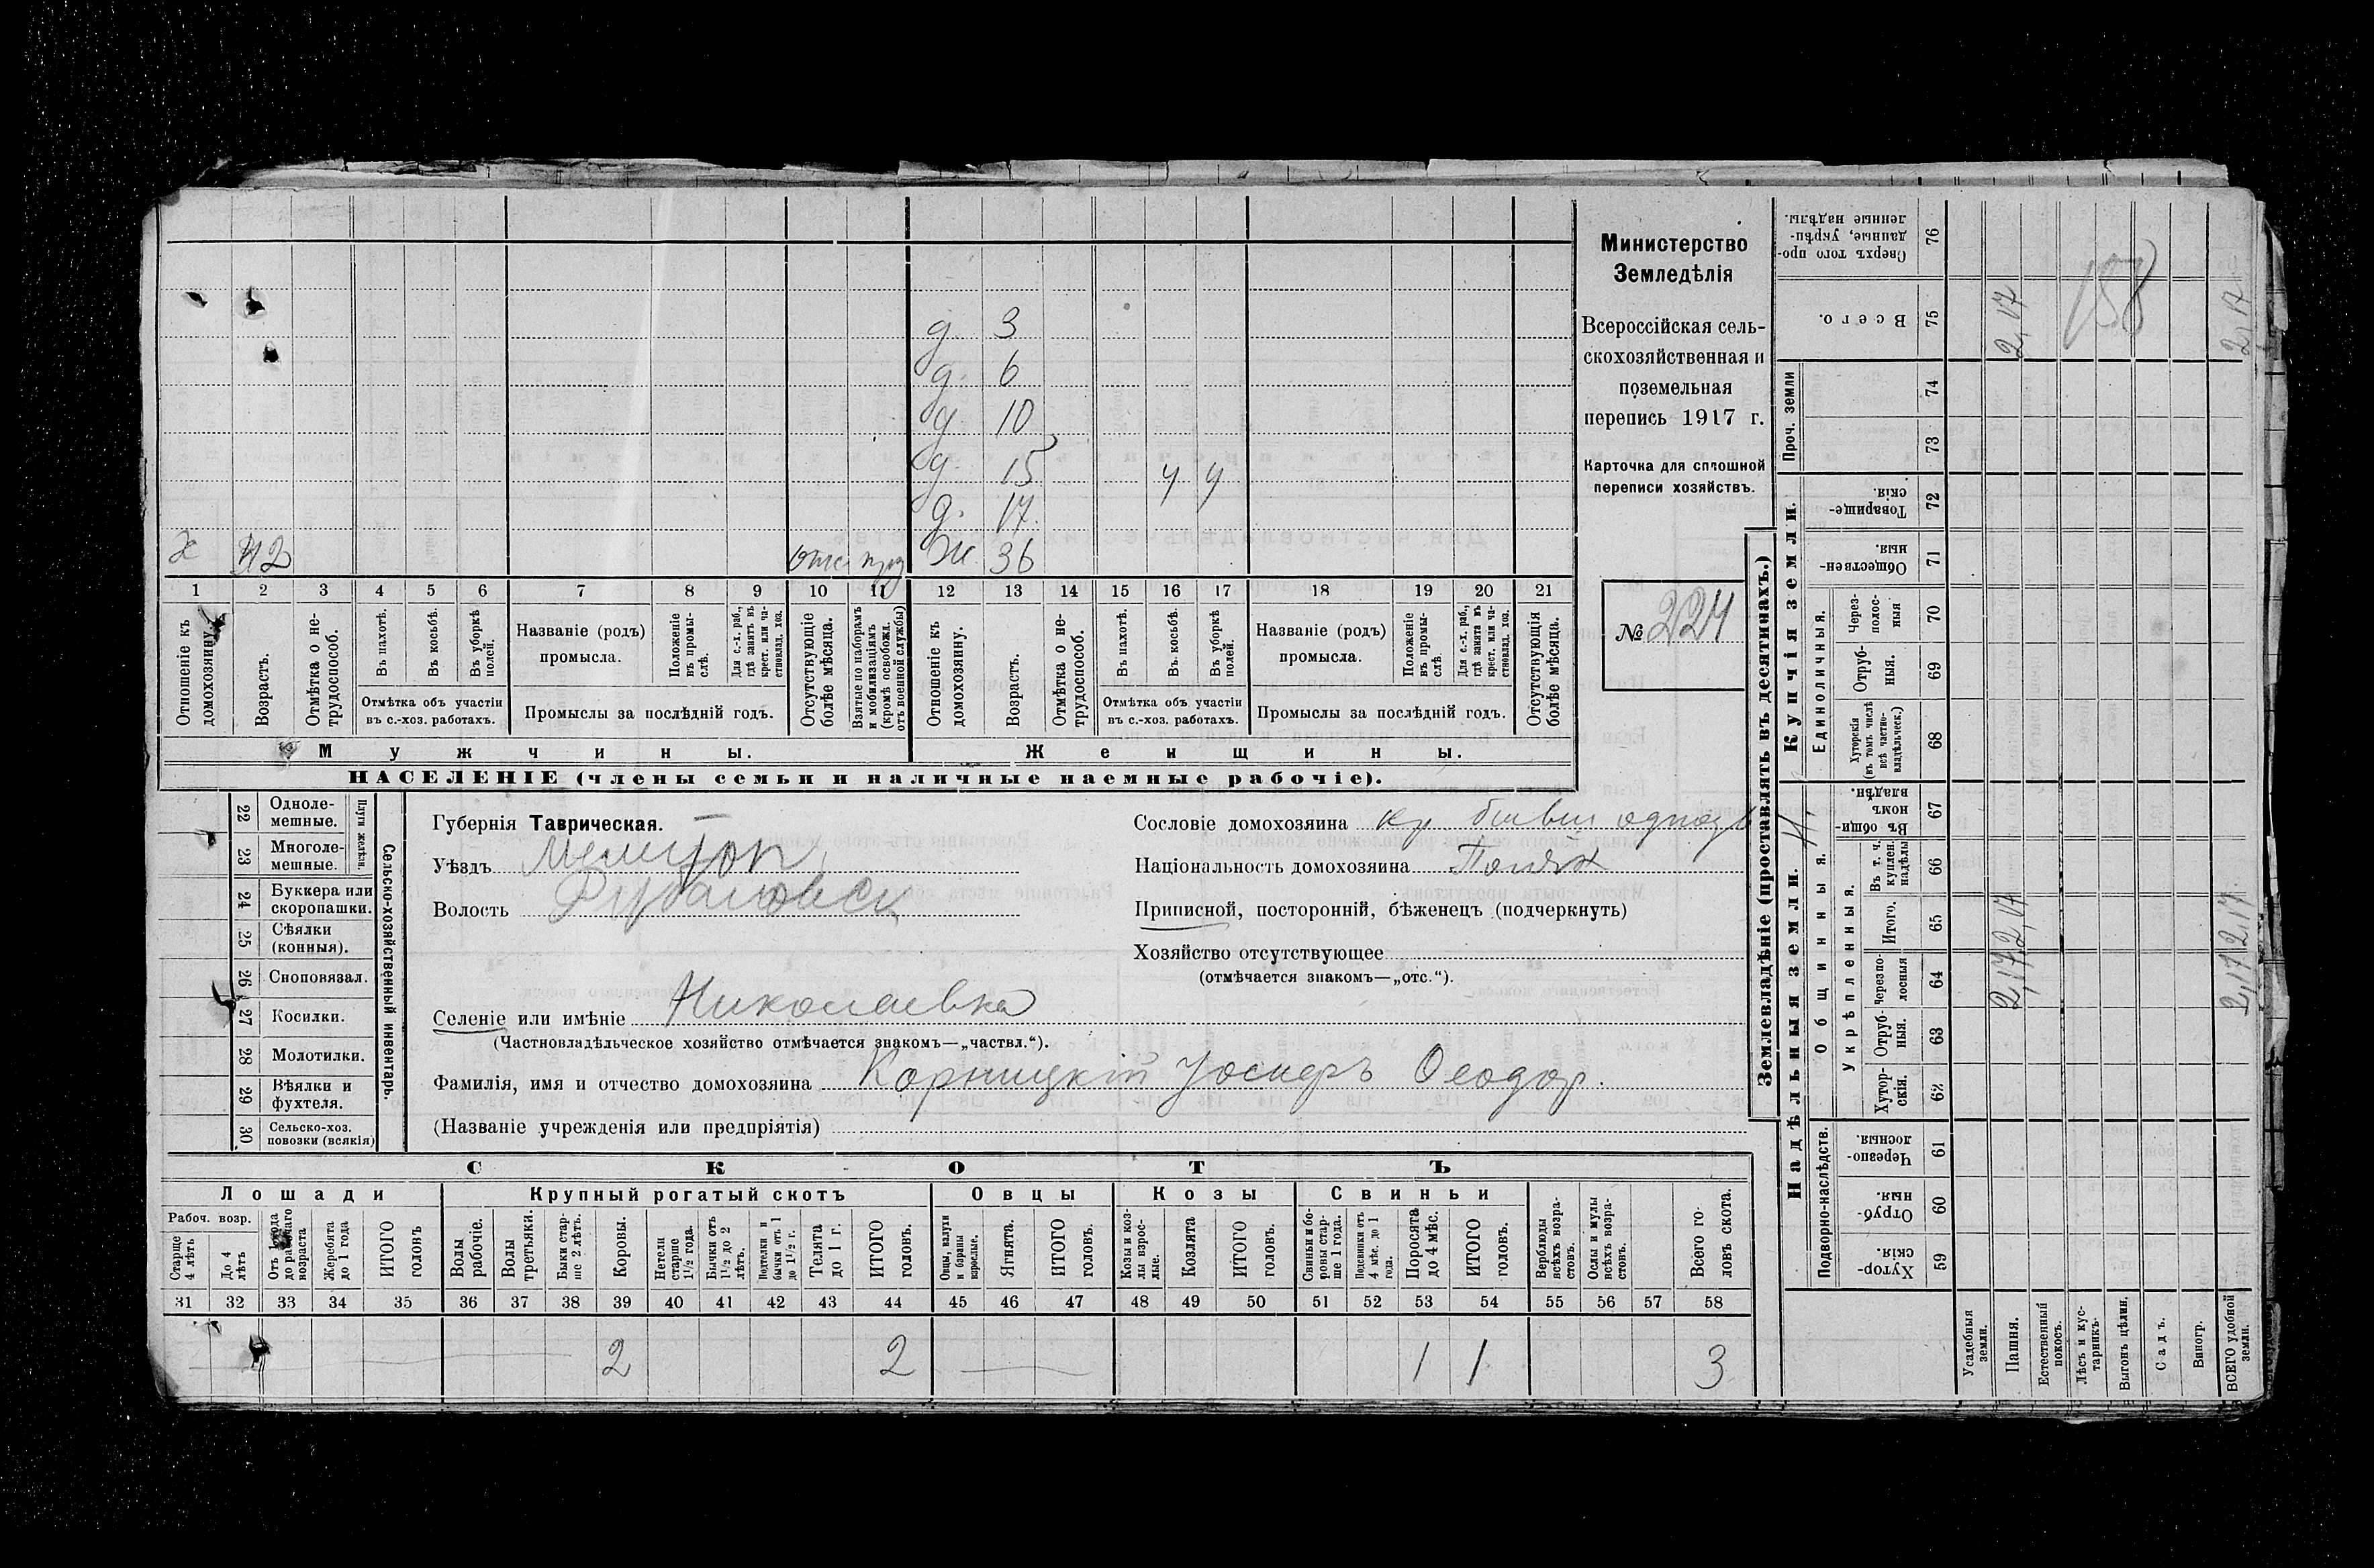 Министерство
Земледѣлія
Всероссійская сель-
скохозяйственная и
поземельная
перепись 1917 г.
Карточка для сплошной
переписи хозяйствъ.
№ 224
д. 3
д. 6
д. 10
д. 15 у у
д. 17.
х 42 отс. Ж. 36
1 2 3 4 5 6 7 8 9 10 11 12 13 14 15 16 17 18 19 20 21
Отношеніе къ домохозяину.
Возрастъ.
Отмѣтка о не-трудоспособ.
Въ пахотѣ.
Въ косьбѣ.
Въ уборкѣ полей.
Отмѣтка объ участіи
въ с.-хоз. работахъ.
Названіе (родъ)
промысла.
Положеніе въ промы-слѣ.
Для с.-х. раб., гдѣ занятъ въ крест. или ча-стновлад. хоз.
Промыслы за послѣдній годъ.
Отсутствующіе болѣе мѣсяца.
Взятые по наборамъ и мобилизаціямъ (кромѣ освобожд. отъ военной службы)
Отношеніе къ домохозяину.
Возрастъ.
Отмѣтка о не-трудоспособ.
Въ пахотѣ.
Въ косьбѣ.
Въ уборкѣ полей.
Отмѣтка объ участіи
въ с.-хоз. работахъ.
Названіе (родъ)
промысла.
Положеніе въ промы-слѣ
Для с.-х. раб., гдѣ занята въ крест. или ча-стновлад. хоз.
Промыслы за послѣдній годъ.
Отсутствующія болѣе мѣсяца.
Мужчины. Женщины.
НАСЕЛЕНІЕ (члены семьи и наличные наемные рабочіе).
22 Одноле-мешные.
23 Многоле-мешные.
Плуги желѣзн.
24 Буккера или скоропашки.
25 Сѣялки (конныя).
26 Сноповязал.
27 Косилки.
28 Молотилки.
29 Вѣялки и фухтеля.
30 Сельско-хоз. повозки (всякія)
Сельско-хозяйственный инвентарь.
Губернія Таврическая.
Уѣздъ Мелитоп.
Волость Рубановск
Селеніе или имѣніе Николаевка
(Частновладѣльческое хозяйство отмѣчается знакомъ—„частвл.“).
Фамилія, имя и отчество домохозяина Корницкій Іосифъ Ѳеодор.
(Названіе учрежденія или предпріятія)
Сословіе домохозяина кр. бывш
Національность домохозяина Поляк
Приписной, посторонній, бѣженецъ (подчеркнуть)
Хозяйство отсутствующее
(отмѣчается знакомъ—„отс.“).
СКОТЪ
Лошади Крупный рогатый скотъ Овцы Козы Свиньи
Рабоч. возр.
Старше 4 лѣтъ
До 4 лѣтъ
Отъ 1 года до рабочаго возраста
Жеребята до 1 года
ИТОГО головъ
Волы рабочіе.
Волы третьяки.
Быки стар-ше 2 лѣтъ.
Коровы.
Нетели старше 1 1/2 года.
Бычки отъ 1 1/2 до 2 лѣтъ.
Подтелки и бычки отъ 1 до 1 1/2 г.
Телята до 1 г.
ИТОГО головъ.
Овцы, валухи и бараны взрослые.
Ягнята.
ИТОГО головъ.
Козы и коз-лы взрос-лые.
Козлята
ИТОГО головъ.
Свиньи и бо-ровы стар-ше 1 года.
Подсвинки отъ 4 мѣс. до 1 года.
Поросята до 4 мѣс.
ИТОГО головъ.
Верблюды всѣхъ возра-стовъ.
Ослы и мулы всѣхъ возра-стовъ.
Всего го-ловъ скота.
31 32 33 34 35 36 37 38 39 40 41 42 43 44 45 46 47 48 49 50 51 52 53 54 55 56 57 58
2 2 1 1 3
Землевладѣніе (проставлять въ десятинахъ.)
Надѣльныя земли. Купчія земли.
Подворно-наслѣдств.
Общинныя.
Укрѣпленныя.
Единоличныя.
Проч. земли
Сверхъ того про-данные, укрѣп-ленные надѣлы. 76
Всего. 75
74
73
Товарище-скія. 72
Обществен-ныя. 71
Через-полос-ныя 70
Отруб-ныя. 69
Хуторскія (въ томъ числѣ всѣ частно-владѣльческ.) 68
Въ общи-номъ владѣн. 67
Въ т. ч. куплен. надѣлы 66
Итого. 65
Черезпо-лосныя 64
Отруб-ныя. 63
Хутор-скія. 62
Черезпо-лосныя. 61
Отруб-ныя. 60
Хутор-скія. 59
Усадебныя земли.
Пашня.
Естественный покосъ.
Лѣсъ и кус-тарникъ.
Выгонъ цѣлин.
Садъ.
Виногр.
ВСЕГО удобной земли.
2,17 2,17 2,17
158
2,17 2,17 2,17